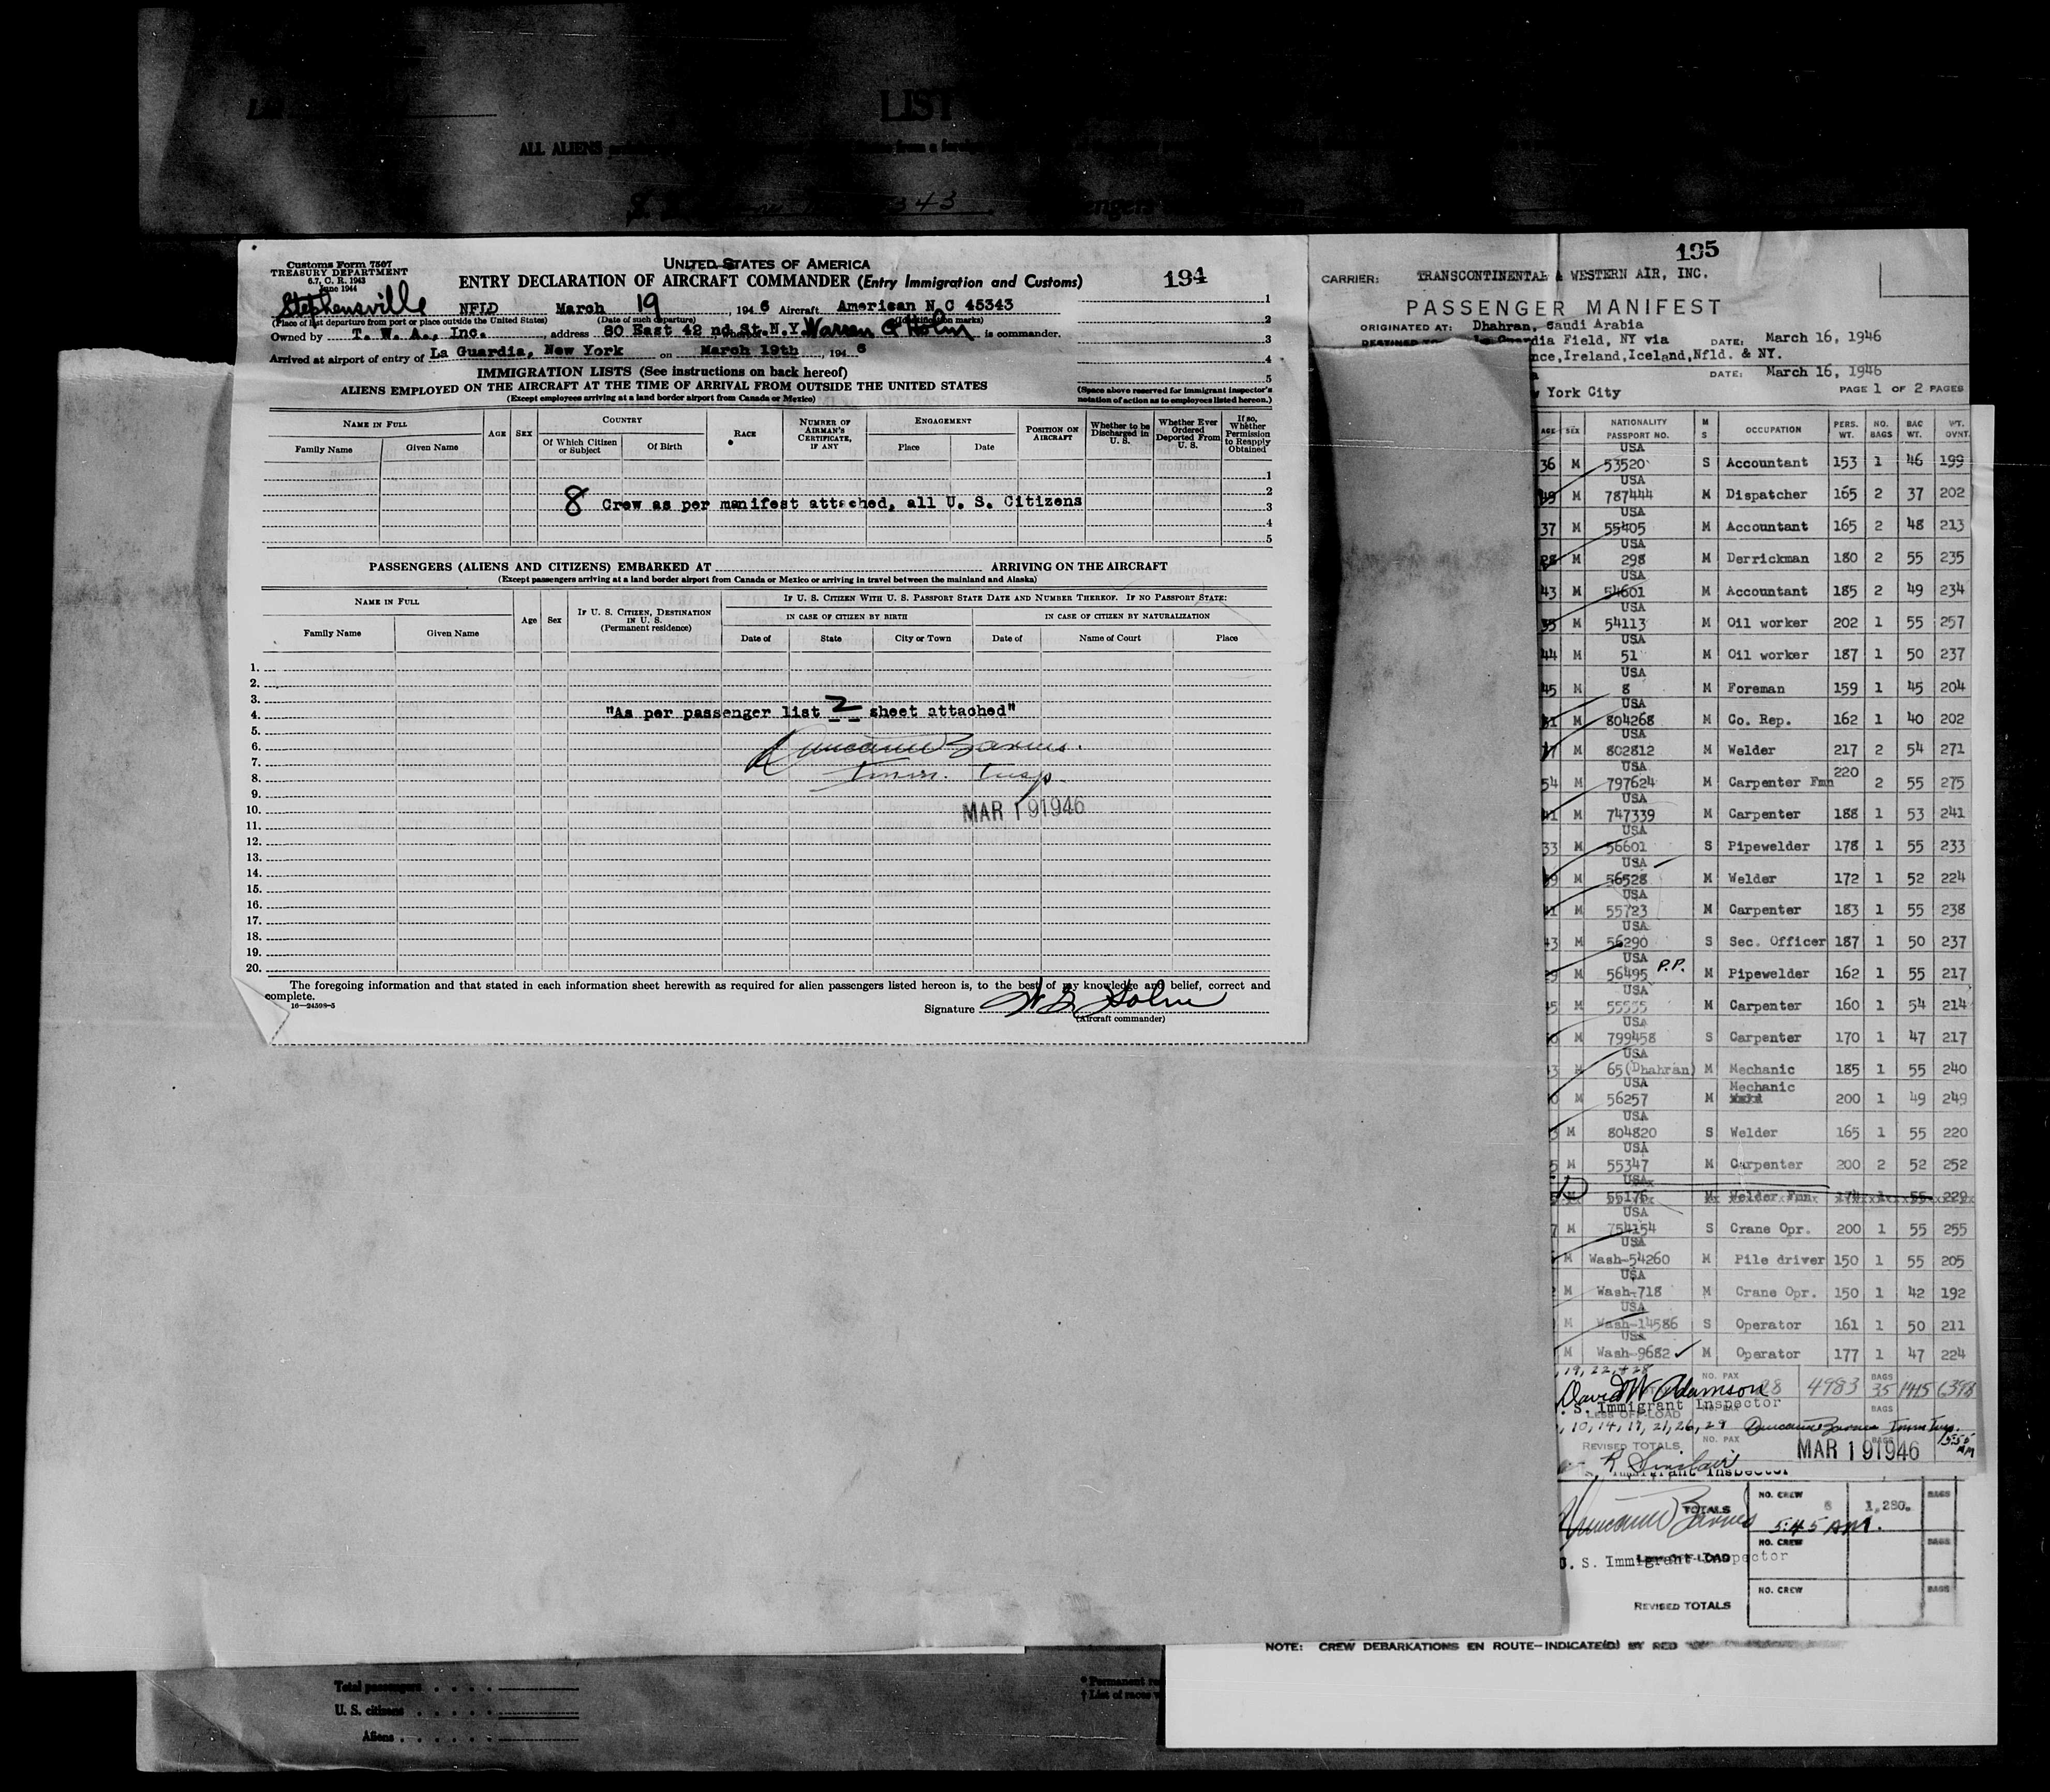 LIST
ALL ALIENS
343
Customs Form 7507
TREASURY DEPARTMENT
6.7, C. R. 1943
June 1944
UNITED STATES OF AMERICA
ENTRY DECLARATION OF AIRCRAFT COMMANDER (Entry Immigration and Customs)
194
Stephensville NFLD March 19, 1946 Aircraft American N C 45343
(Place of last departure from port or place outside the United States) (Date of such departure) (Identification marks)
Owned by T. W. A., Inc., address 80 East 42 nd St. N.Y. Warren G Holm is commander.
Arrived at airport of entry of La Guardia, New York on March 19th, 1946
1
2
3
4
5
IMMIGRATION LISTS (See instructions on back hereof)
ALIENS EMPLOYED ON THE AIRCRAFT AT THE TIME OF ARRIVAL FROM OUTSIDE THE UNITED STATES
(Except employees arriving at a land border airport from Canada or Mexico)
(Space above reserved for immigrant inspector's notation of action as to employees listed hereon.)
NAME IN FULL AGE SEX COUNTRY RACE NUMBER OF AIRMAN'S CERTIFICATE, IF ANY ENGAGEMENT POSITION ON AIRCRAFT Whether to be Discharged in U. S. Whether Ever Ordered Deported From U. S. If so, Whether Permission to Reapply Obtained
Family Name Given Name Of Which Citizen or Subject Of Birth Place Date
1
2
8 Crew as per manifest attached, all U. S. Citizens
3
4
5
PASSENGERS (ALIENS AND CITIZENS) EMBARKED AT ARRIVING ON THE AIRCRAFT
(Except passengers arriving at a land border airport from Canada or Mexico or arriving in travel between the mainland and Alaska)
NAME IN FULL Age Sex IF U. S. CITIZEN, DESTINATION IN U. S. (Permanent residence) IF U. S. CITIZEN WITH U. S. PASSPORT STATE DATE AND NUMBER THEREOF. IF NO PASSPORT STATE:
IN CASE OF CITIZEN BY BIRTH IN CASE OF CITIZEN BY NATURALIZATION
Family Name Given Name Date of State City or Town Date of Name of Court Place
1.
2.
3.
"As per passenger list 2 sheet attached"
4.
5.
6. Duncann Barnes.
7.
8. Imm. Insp.
9.
10. MAR 19 1946
11.
12.
13.
14.
15.
16.
17.
18.
19.
20.
The foregoing information and that stated in each information sheet herewith as required for alien passengers listed hereon is, to the best of my knowledge and belief, correct and
complete.
16—24598-5
Signature W G Holm
(Aircraft commander)
195
CARRIER: TRANSCONTINENTAL & WESTERN AIR, INC.
PASSENGER MANIFEST
ORIGINATED AT: Dhahran, Saudi Arabia
dia Field, NY via DATE: March 16, 1946
nce, Ireland, Iceland, Nfld. & NY.
DATE: March 16, 1946
York City PAGE 1 OF 2 PAGES
AGE SEX NATIONALITY PASSPORT NO. M S OCCUPATION PERS. WT. NO. BAGS BAG WT. WT. OVNT.
USA
36 M 53520 S Accountant 153 1 46 199
USA
49 M 787444 M Dispatcher 165 2 37 202
USA
37 M 55405 M Accountant 165 2 48 213
USA
28 M 298 M Derrickman 180 2 55 235
USA
43 M 54601 M Accountant 185 2 49 234
USA
35 M 54113 M Oil worker 202 1 55 257
USA
44 M 51 M Oil worker 187 1 50 237
USA
45 M 8 M Foreman 159 1 45 204
USA
M 804268 M Co. Rep. 162 1 40 202
USA
M 802812 M Welder 217 2 54 271
USA
54 M 797624 M Carpenter Fmn 220 2 55 275
USA
41 M 747339 M Carpenter 188 1 53 241
USA
33 M 56601 S Pipewelder 178 1 55 233
USA
M 56528 M Welder 172 1 52 224
USA
M 55723 M Carpenter 183 1 55 238
USA
43 M 56290 S Sec. Officer 187 1 50 237
USA
M 56495 P.P. M Pipewelder 162 1 55 217
USA
M 55555 M Carpenter 160 1 54 214
USA
M 799458 S Carpenter 170 1 47 217
USA
M 65(Dhahran) M Mechanic 185 1 55 240
USA
M 56257 M Mechanic 200 1 49 249
USA
M 804820 S Welder 165 1 55 220
USA
M 55347 M Carpenter 200 2 52 252
USA
55176 M Welder Fmn 174 1 55 229
USA
M 754154 S Crane Opr. 200 1 55 255
USA
M Wash-54260 M Pile driver 150 1 55 205
USA
M Wash-718 M Crane Opr. 150 1 42 192
USA
M Wash-14586 S Operator 161 1 50 211
USA
M Wash-9682 M Operator 177 1 47 224
19, 22, + 28
NO. PAX
David W Adamson 28 4983 BAGS 35 1415 6398
S. Immigrant Inspector
LESS OFF-LOAD BAGS
10, 14, 17, 21, 26, 29 Duncann Barnes Imm Insp.
REVISED TOTALS NO. PAX MAR 19 1946 5:50 AM
R Sinclair
Immigrant Inspector
TOTALS NO. CREW 8 1,280. BAGS
Duncann Barnes 5:45 AM.
S. Immigrant Inspector
LESS OFF-LOAD NO. CREW BAGS
REVISED TOTALS NO. CREW BAGS
NOTE: CREW DEBARKATIONS EN ROUTE—INDICATE(D) BY RED
Total passengers
U. S. citizens
Aliens
* Permanent re
† List of races